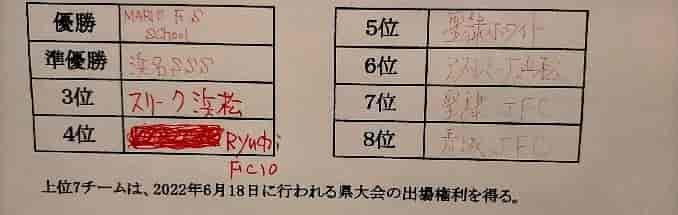 優勝 MARIO F S
School
準優勝 浜名SSS
3位 スリーク浜松
4位 Ryuhi
FC10
5位 聖隷ホワイト
6位 浜松
7位 聖隷 JFC
8位 JFC
上位7チームは、2022年6月18日に行われる県大会の出場権利を得る。